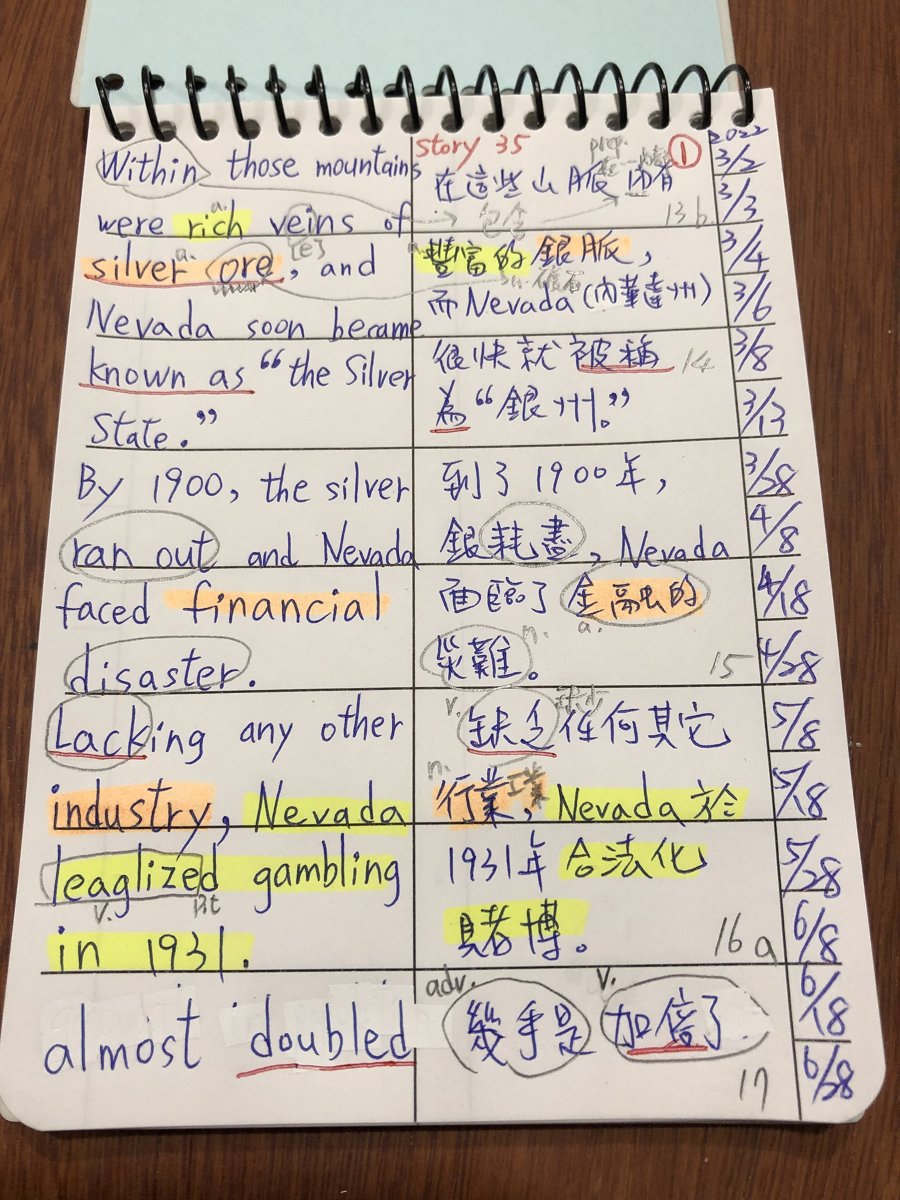 Story 35
①
2022
Within those mountains
were rich veins of
a.
[e]
silver ore, and
a.
Nevada soon became
known as “the Silver
State.”
By 1900, the silver
ran out and Nevada
faced financial
disaster.
Lacking any other
industry, Nevada
leaglized gambling
v. pt
in 1931.
almost doubled
在這些山脈內有
包含
13 b
豐富的銀脈，
a.
n. 礦石
而Nevada(內華達州)
很快就被稱
14
為“銀州。”
到了1900年，
銀耗盡，Nevada
面臨了金融的
a.
災難。
n.
15
v.
缺乏任何其它
缺少
n.
行業，Nevada於
工業
1931年合法化
賭博。
16 a
adv. v.
幾乎是 加倍了.
17
3/2
3/3
3/4
3/6
3/8
3/13
3/28
4/8
4/18
4/28
5/8
5/18
5/28
6/8
6/18
6/28